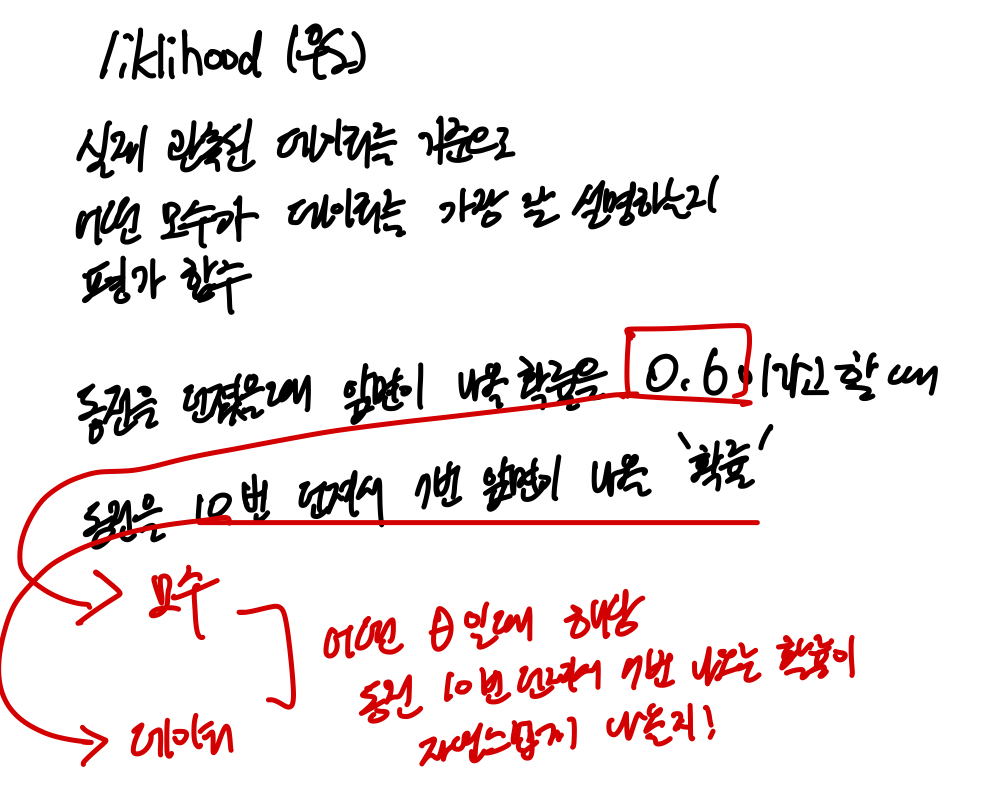 liklihood (우도)
실제 관측된 데이터를 기준으로
어떤 모수가 데이터를 가장 잘 설명하는지
평가 함수
동전을 던졌을때 앞면이 나올 확률을 0.6이라고 할 때
동전을 10번 던져서 7번 앞면이 나올 '확률'
모수
어떤 θ일때 해당
동전 10번 던져서 7번 나오는 확률이
자연스럽게 나올지!
데이터